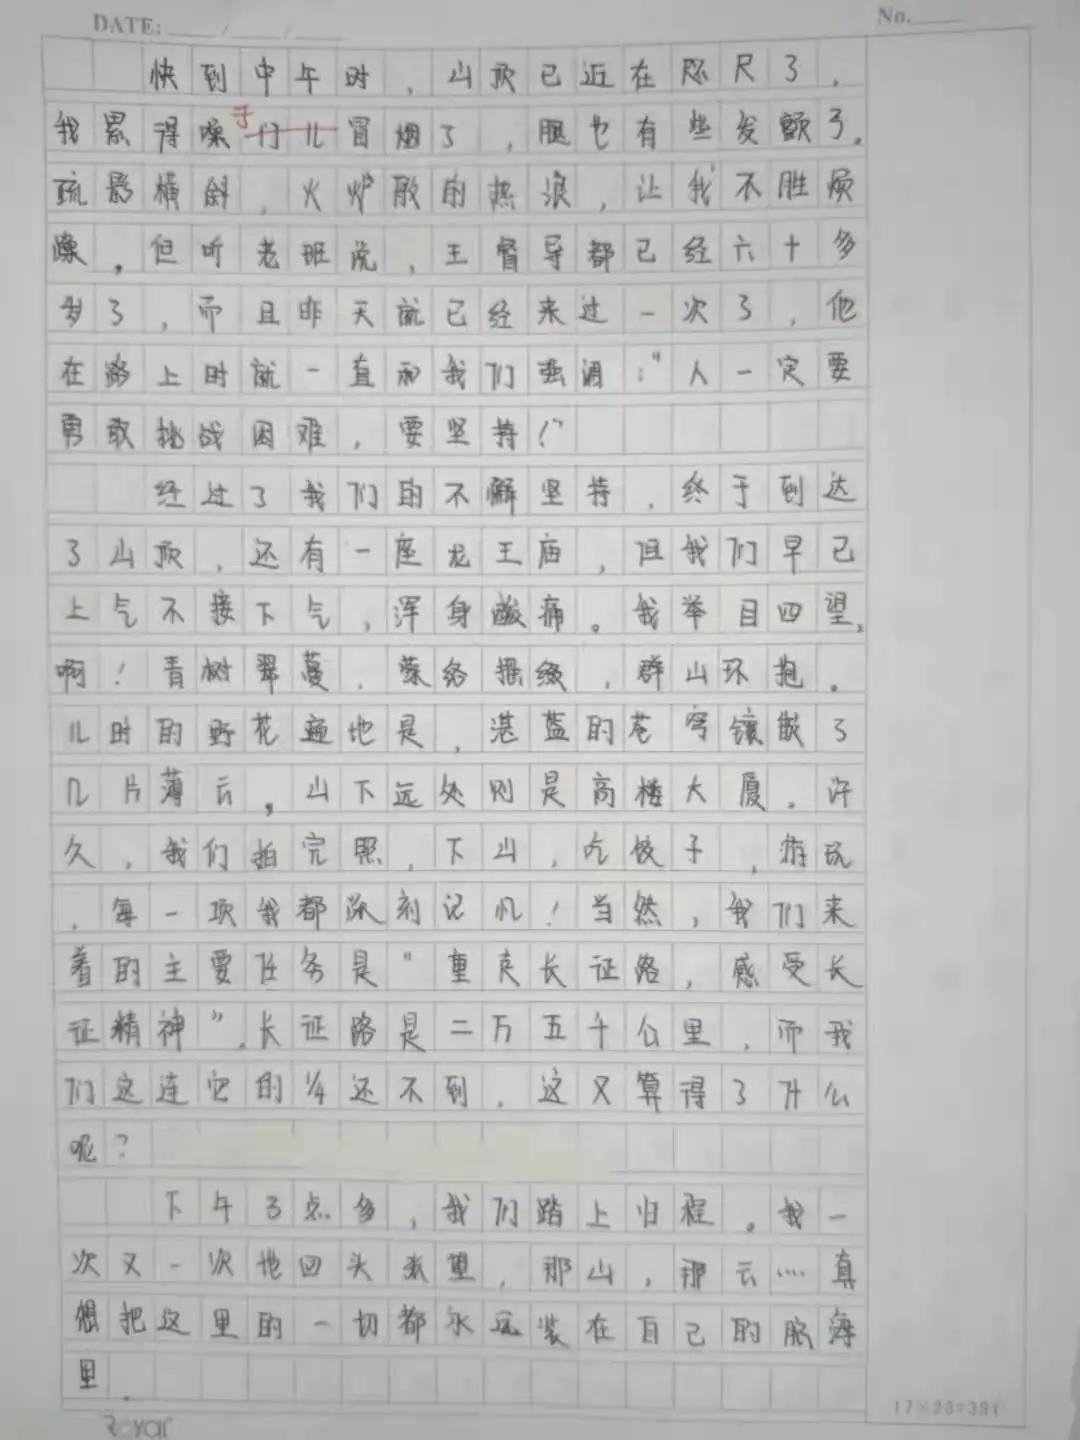 DATE: ___/___/___ No.____
快到中午时，山顶已近在咫尺了，
我累得嗓子冒烟了，腿也有些发颤了。
疏影横斜，火炉般的热浪，让我不胜烦
燥。但听老班说，王督导都已经六十多
岁了，而且昨天就已经来过一次了，他
在路上时就一直和我们强调：“人一定要
勇敢挑战困难，要坚持！”
经过了我们的不懈坚持，终于到达
了山顶，还有一座龙王庙，但我们早已
上气不接下气，浑身酸痛。我举目四望，
啊！青树翠蔓，蒙络摇缀，群山环抱。
儿时的野花遍地是，湛蓝的苍穹镶散了
几片薄云，山下远处则是高楼大厦。许
久，我们拍完照，下山，吃饺子，游玩
，每一项我都深刻记忆！当然，我们来
着的主要任务是“重走长征路，感受长
征精神”。长征路是二万五千公里，而我
们这连它的¼还不到，这又算得了什么
呢？
下午3点多，我们踏上归程。我一
次又一次地回头张望，那山，那云……真
想把这里的一切都永远装在自己的脑海
里。
Royal 17×23=391